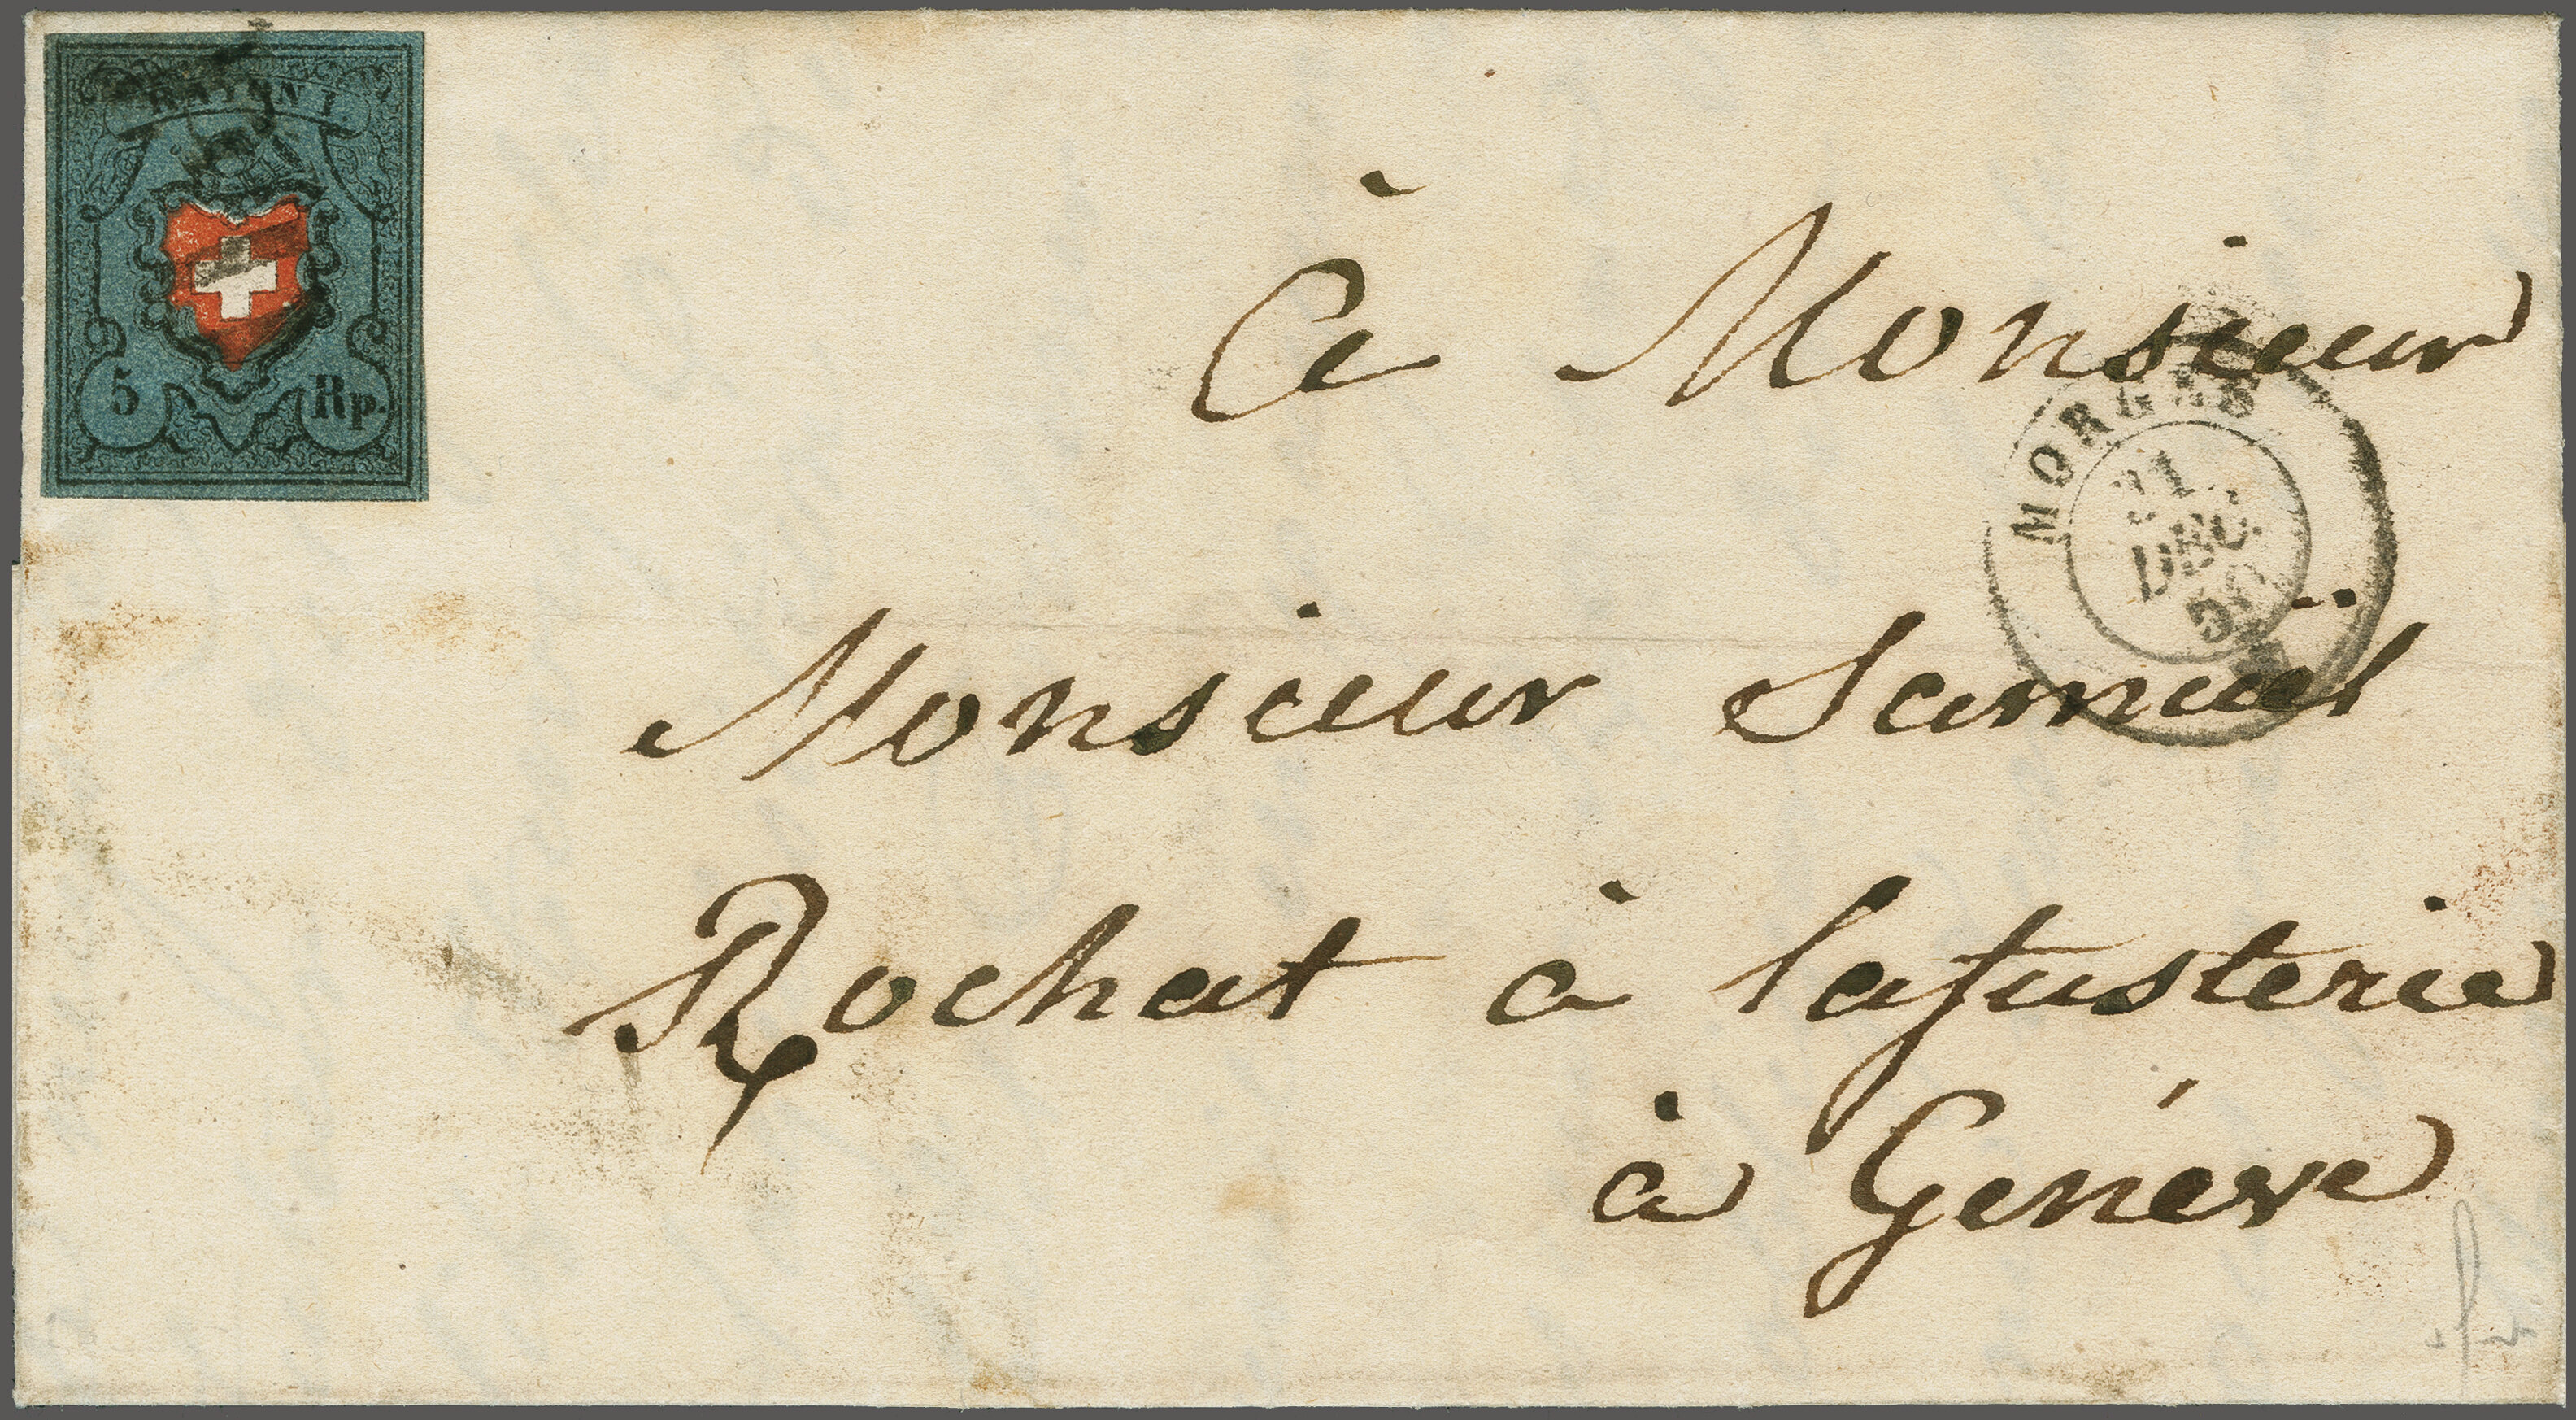 RAYON I
5 Rp.
à Monsieur
MORGES
DEC.
Monsieur Samuël
Rochat à la fusterie
à Genéve